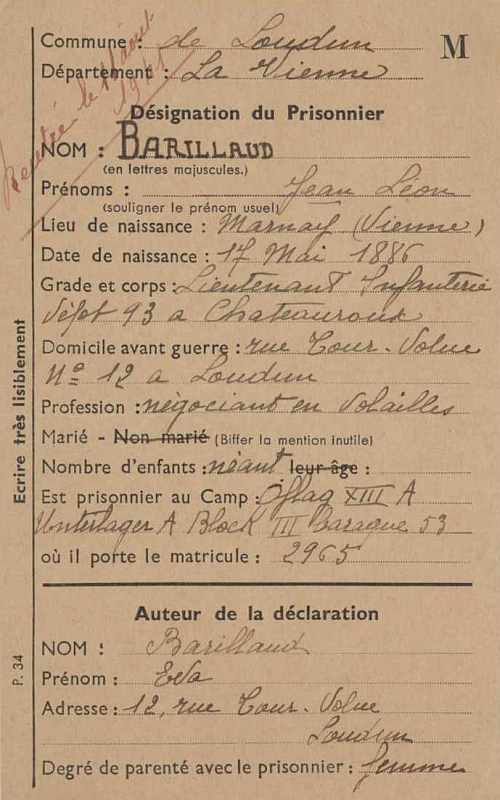 Commune : de Loudun
M
Département : La Vienne
Rentré le août
1941
Désignation du Prisonnier
NOM : BARILLAUD
(en lettres majuscules.)
Prénoms : Jean Léon
(souligner le prénom usuel)
Lieu de naissance : Marnay (Vienne)
Date de naissance : 17 Mai 1886
Grade et corps : Lieutenant Infanterie
Dépot 93 a Chateauroux
Domicile avant guerre : rue Tour-Volue
Nº 12 a Loudun
Profession : négociant en Volailles
Marié - Non marié (Biffer la mention inutile)
Nombre d'enfants : néant leur âge :
Est prisonnier au Camp : Oflag XIII A
Unterlager A Block III Baraque 53
où il porte le matricule : 2965
Auteur de la déclaration
NOM : Barillaud
Prénom : Eva
Adresse : 12, rue Tour-Volue
Loudun
Degré de parenté avec le prisonnier : femme
Ecrire très lisiblement
P. 34